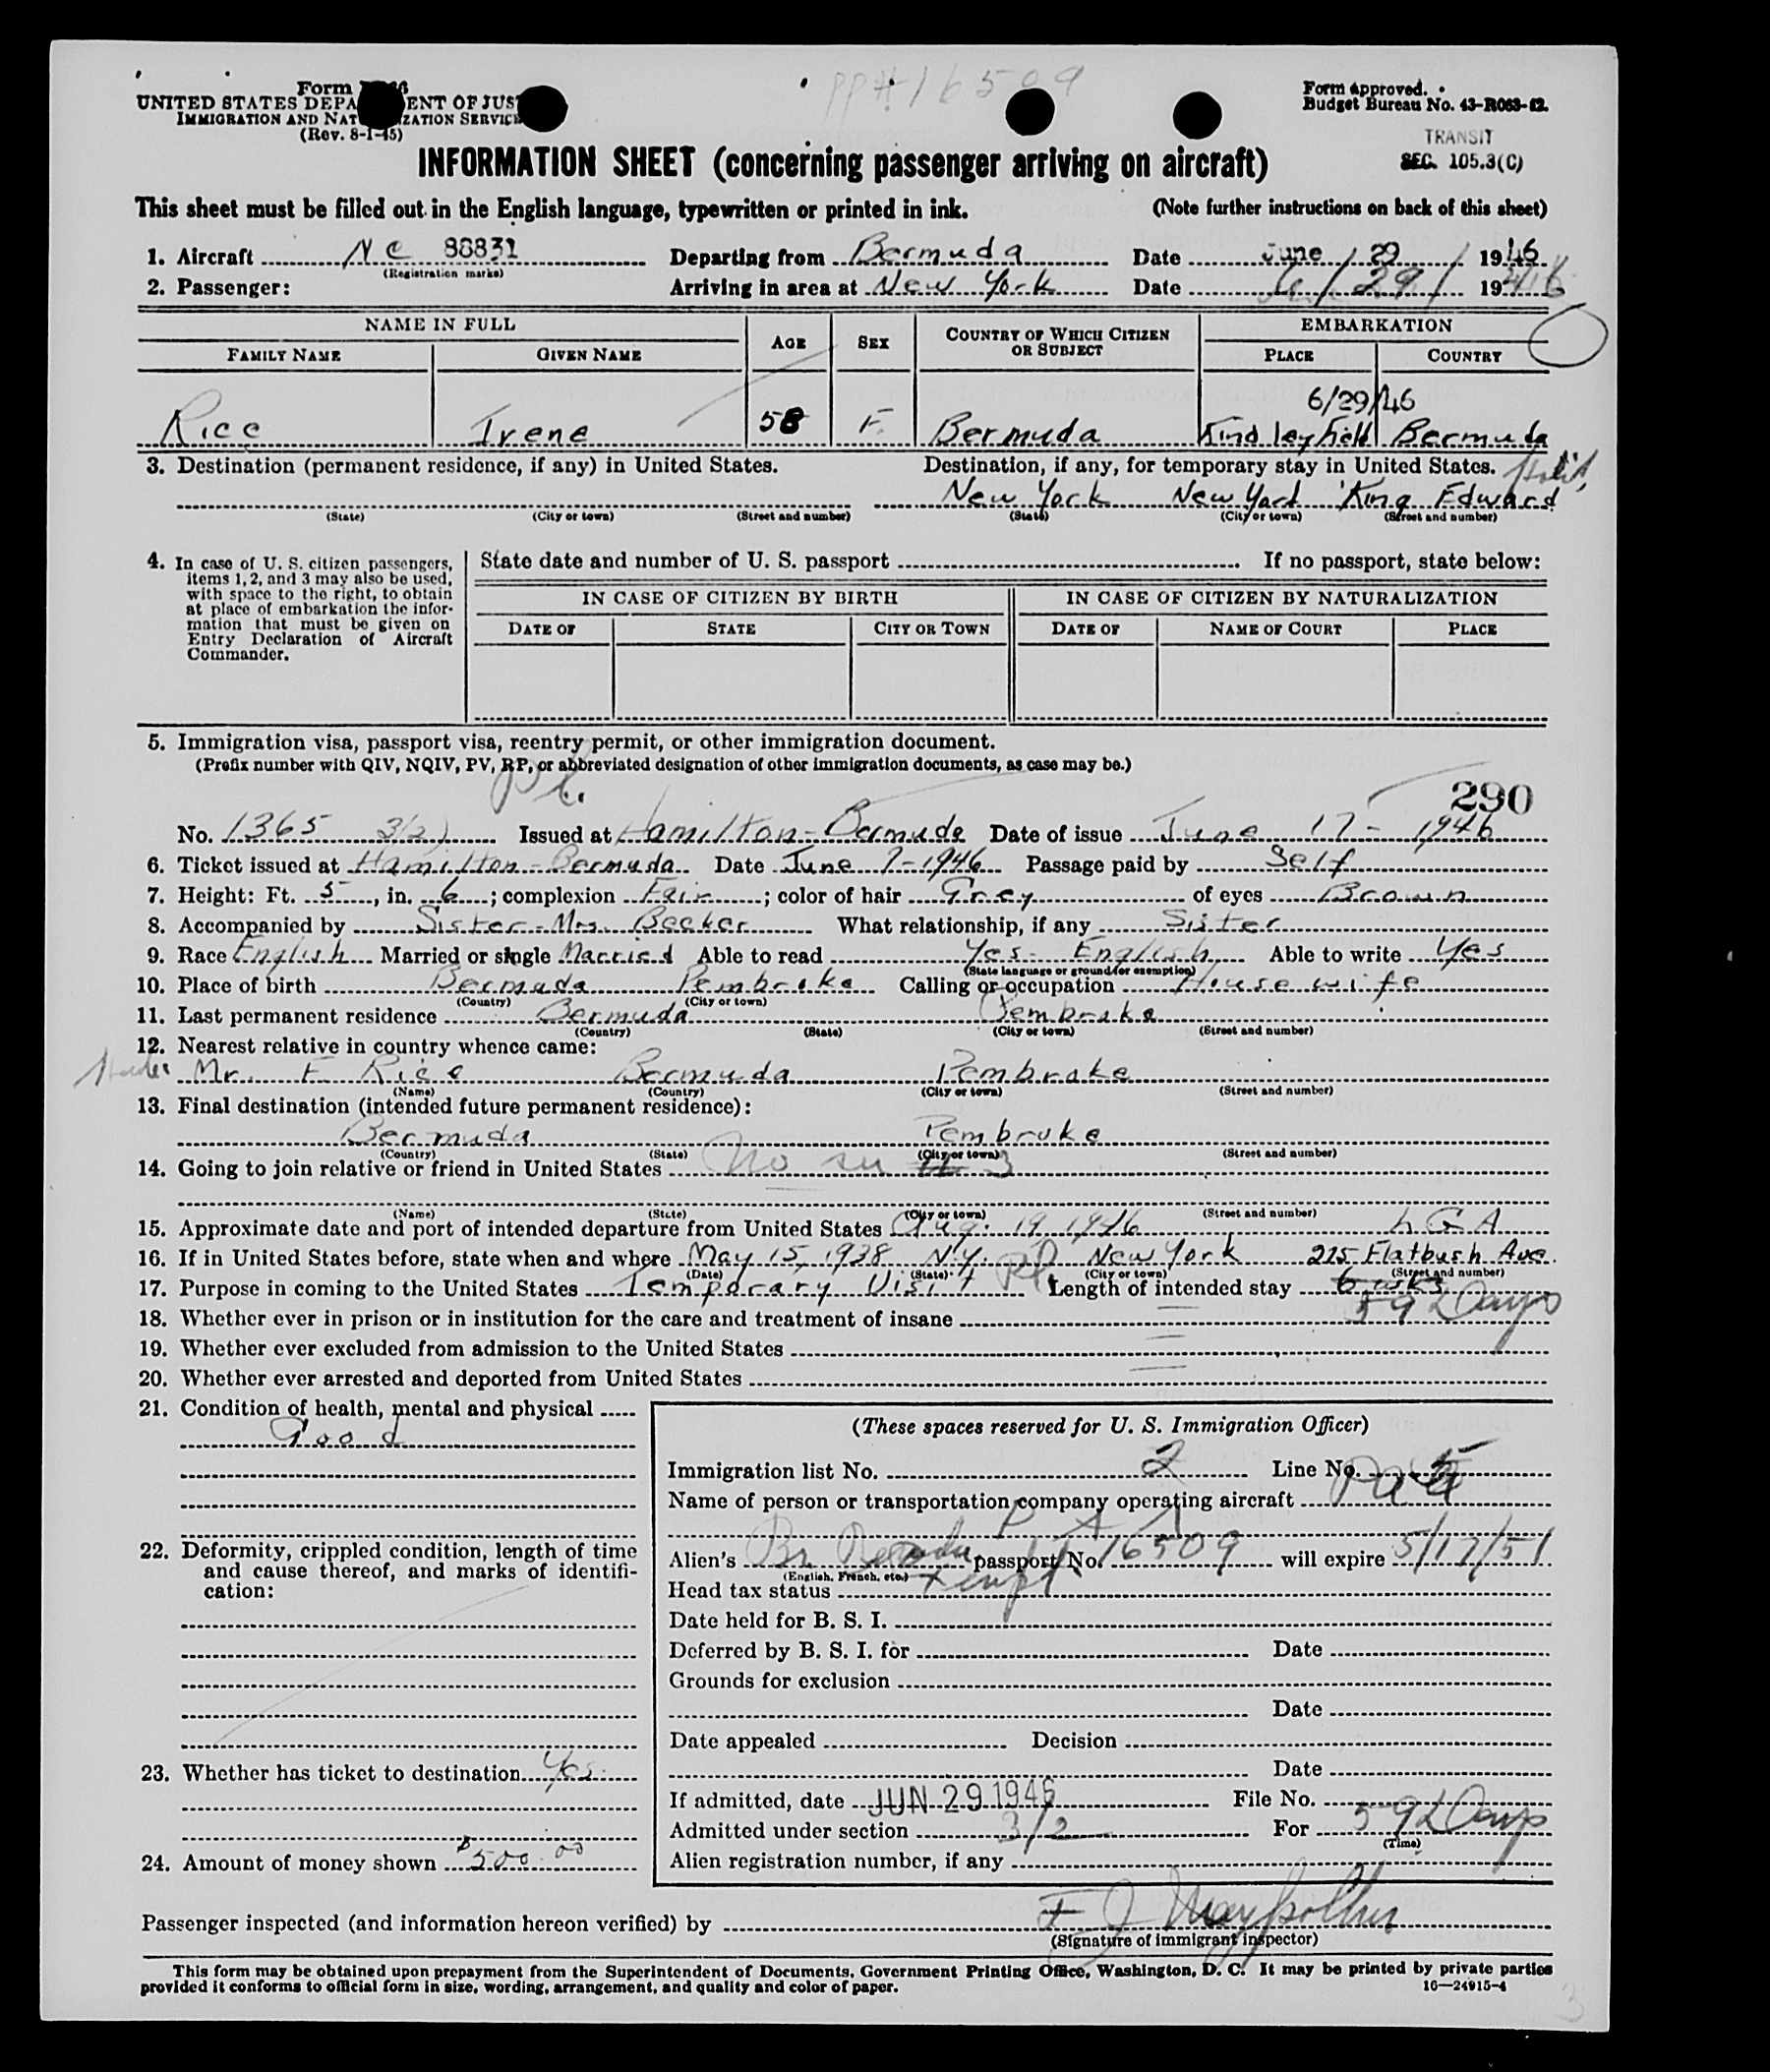 PP# 16509
Form
UNITED STATES DEPA ENT OF JUS
IMMIGRATION AND NAT ZATION SERVICE
(Rev. 8-1-45)
Form Approved.
Budget Bureau No. 43-R063-42.
TRANSIT
SEC. 105.3(C)
INFORMATION SHEET (concerning passenger arriving on aircraft)
This sheet must be filled out in the English language, typewritten or printed in ink. (Note further instructions on back of this sheet)
1. Aircraft NC 88831 Departing from Bermuda Date June / 29 / 1946
(Registration marks)
2. Passenger: Arriving in area at New York Date 6 / 29 / 1946
NAME IN FULL AGE SEX COUNTRY OF WHICH CITIZEN OR SUBJECT EMBARKATION
FAMILY NAME GIVEN NAME PLACE COUNTRY
6/29/46
Rice Irene 58 F. Bermuda Kindley Field Bermuda
3. Destination (permanent residence, if any) in United States. Destination, if any, for temporary stay in United States. Hotel,
New York New York King Edward
(State) (City or town) (Street and number) (State) (City or town) (Street and number)
4. In case of U. S. citizen passengers, items 1, 2, and 3 may also be used, with space to the right, to obtain at place of embarkation the information that must be given on Entry Declaration of Aircraft Commander.
State date and number of U. S. passport If no passport, state below:
IN CASE OF CITIZEN BY BIRTH IN CASE OF CITIZEN BY NATURALIZATION
DATE OF STATE CITY OR TOWN DATE OF NAME OF COURT PLACE
5. Immigration visa, passport visa, reentry permit, or other immigration document.
(Prefix number with QIV, NQIV, PV, RP, or abbreviated designation of other immigration documents, as case may be.)
290
No. 1365 3(2) Issued at Hamilton - Bermuda Date of issue June 17 - 1946
6. Ticket issued at Hamilton - Bermuda Date June 7-1946 Passage paid by Self
7. Height: Ft. 5, in. 6; complexion Fair; color of hair Grey of eyes Brown
8. Accompanied by Sister - Mrs. Becker What relationship, if any Sister
9. Race English Married or single Married Able to read Yes - English Able to write Yes
(State language or ground for exemption)
10. Place of birth Bermuda Pembroke Calling or occupation Housewife
(Country) (City or town)
11. Last permanent residence Bermuda Pembroke
(Country) (State) (City or town) (Street and number)
12. Nearest relative in country whence came:
Mr. F Rice Bermuda Pembroke
(Name) (Country) (City or town) (Street and number)
13. Final destination (intended future permanent residence):
Bermuda Pembroke
(Country) (State) (City or town) (Street and number)
14. Going to join relative or friend in United States No 3
(Name) (State) (City or town) (Street and number)
15. Approximate date and port of intended departure from United States Aug. 19 1946 LGA
16. If in United States before, state when and where May 15, 1938 N.Y. New York 215 Flatbush Ave.
(Date) (State) (City or town) (Street and number)
17. Purpose in coming to the United States Temporary Visit Length of intended stay 6 wks
59 Days
18. Whether ever in prison or in institution for the care and treatment of insane
19. Whether ever excluded from admission to the United States
20. Whether ever arrested and deported from United States
21. Condition of health, mental and physical
Good
22. Deformity, crippled condition, length of time and cause thereof, and marks of identification:
23. Whether has ticket to destination Yes
24. Amount of money shown $500.00
(These spaces reserved for U. S. Immigration Officer)
Immigration list No. 2 Line No. 5
Name of person or transportation company operating aircraft
P A A
Alien's Br passport No. 16509 will expire 5/17/51
(English, French, etc.)
Head tax status
Date held for B. S. I.
Deferred by B. S. I. for Date
Grounds for exclusion
Date
Date appealed Decision
Date
If admitted, date JUN 29 1946 File No.
Admitted under section 3/2 For 59 Days
(Time)
Alien registration number, if any
Passenger inspected (and information hereon verified) by
(Signature of immigrant inspector)
This form may be obtained upon prepayment from the Superintendent of Documents, Government Printing Office, Washington, D. C. It may be printed by private parties
provided it conforms to official form in size, wording, arrangement, and quality and color of paper. 16—24915-4
3